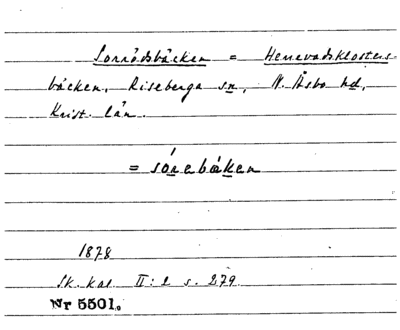 Sorrödsbäcken = Herrevadsklosters-
bäcken, Riseberga sn, N. Åsbo hd,
Krist. län.
= sórebäken
1878
Sk. kal II: 2 s. 279
Nr 5501.